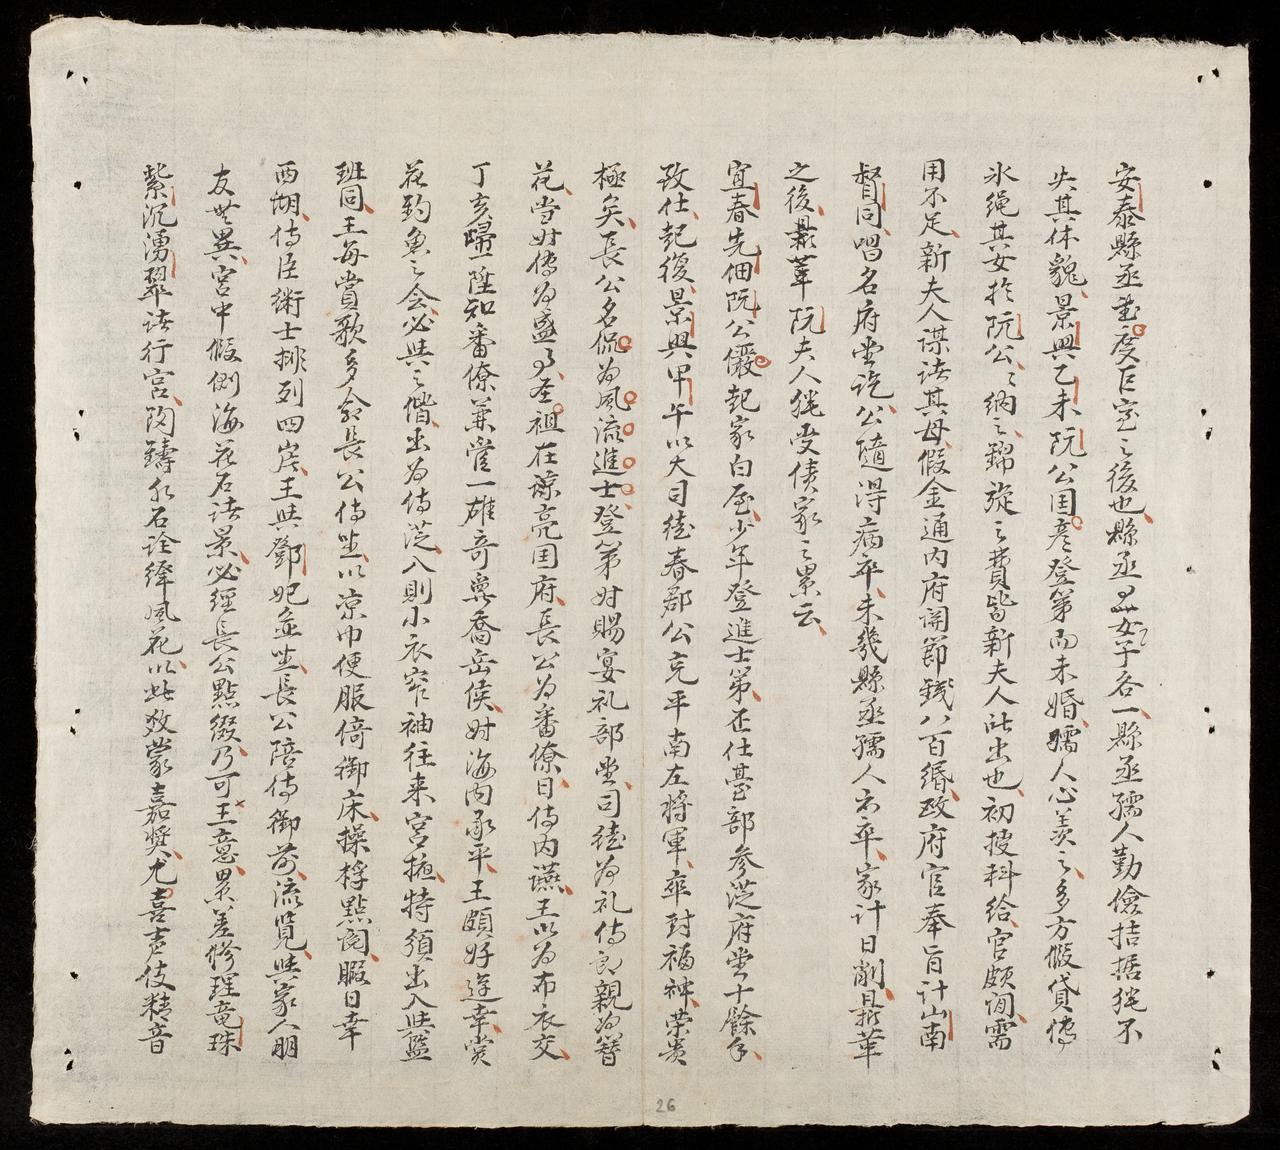 安泰縣丞 度巨室之後也縣丞 女子各一縣丞孺人勤儉拮据終不
失其体貌景興乙未阮公国彦登第而未婚孺人心羡之多方假貸僑
氷绳其女於阮公々納之錦旋之費皆新夫人所出也初披科給官頗 需
用不足新夫人谋諸其母假金通内府関節錢八百緡政府官奉旨计山南
督同唱名府堂讫公隨得病卒未幾縣丞孺人亦卒家计日削最華
之後最華阮夫人終受債家之累云
宜春先佃阮公儼起家白屋少年登進士第歪仕䑓部参莅府堂十餘年
致仕起復景興甲午以大司徒春郡公充平南左将軍卒封福神荣贵
極矣長公名侃为風流進士登第时賜宴礼部堂司徒为礼侍郎親为簪
花当时傳为盛事圣祖在諒亮国府長公为審僚日侍内讌王以为布衣交
丁亥歸一陞知審僚兼管一雄奇粤喬岳侯时海内承平王頗好遊幸赏
花釣魚之会必與之偕出为侍莅入則小衣窄袖往来宫掖特須出入與監
班同王每賞歌多命長公侍坐以凉巾便服倚御床操桴點阅暇日幸
西湖侍臣術士排列四岸王與鄧妃並坐長公陪侍御前流覧與家人朋
友無異宫中假例海花石諸景必經長公點缀乃可王意累差修理竜珠
紫沉湧翠諸行宫陶鑄水石诠绎風花以此数蒙嘉奬尤喜声伎精音
26